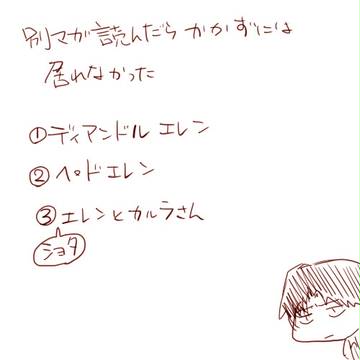 別マガ読んだら かかずには
居れなかった
①ディアンドル エレン
②ペドエレン
③エレンとカルラさん
ショタ